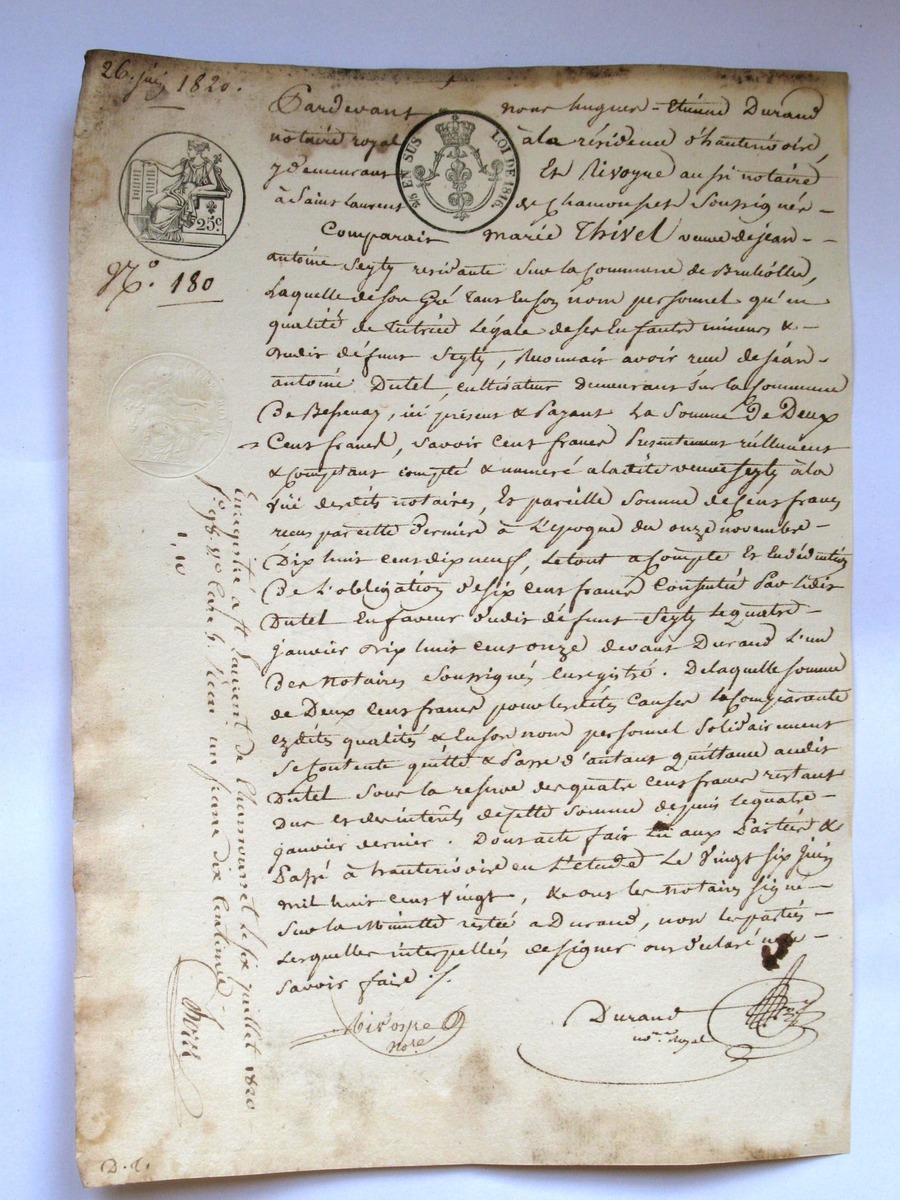 26. juin 1820.
Pardevant nous hugues-Etienne Durand
notaire royal à la résidence d'hauterivoire,
y demeurant Et Rivoyre aussi notaire
à Saint Laurent de Chamousset Soussignés -
5c EN SUS LOI DE 1816.
25c
N.o 180
Comparait marie Thivel veuve de jean-
antoine Seyty residante Sur la Commune de Brulliolles,
Laquelle de Son Gré tant En Son nom personnel qu'en
qualité de Tutrice Légale de Ses Enfants mineurs & -
dudit défunt Seyty, Reconnait avoir reçu de jean-
antoine Dutel, cultivateur demeurant Sur la Commune
De Bessenay, ici présent & Payant La Somme De Deux
Cent francs, Savoir Cent francs Presentement réellement
& Comptant compté & numeré a la dite veuve Seyty à la
vüe desdits notaires, Et pareille Somme de Cent francs
reçus par cette Derniere à L'Epoque du onze novembre -
Dix huit cent dix neuf, Le tout a Compte Et En déduction
De L'obligation de Six Cent francs Consentie Par Ledit
Dutel En faveur dudit défunt Seyty Le quatre -
janvier Dix huit cent onze devant Durand L'un
Des notaires Soussignés Enregistré. De laquelle Somme
de Deux Cent francs pour lesdites Causes La Comparante
ezdites qualités & En Son nom personnel Solidairement
Se Contente quitte & Passe d'autant quittance audit
Dutel Sous la reserve des quatre Cent francs restant
Dus et des intérêts de cette Somme depuis Le quatre -
janvier dernier. Dont acte fait Lu aux Parties &
Passé à hauterivoire en L'étude Le Vingt Six Juin
mil huit Cent Vingt, & ont les notaires Signé -
Sur la Minute restée a Durand, non les parties -
Lesquelles interpellées de Signer ont déclaré ne -
Savoir faire ./.
Rivoyre
No.re
Durand
no.re Royal
Enregistré à St. Laurent de Chamousset Le Six juillet 1820
un franc dix Centimes
1, 10
D. t.